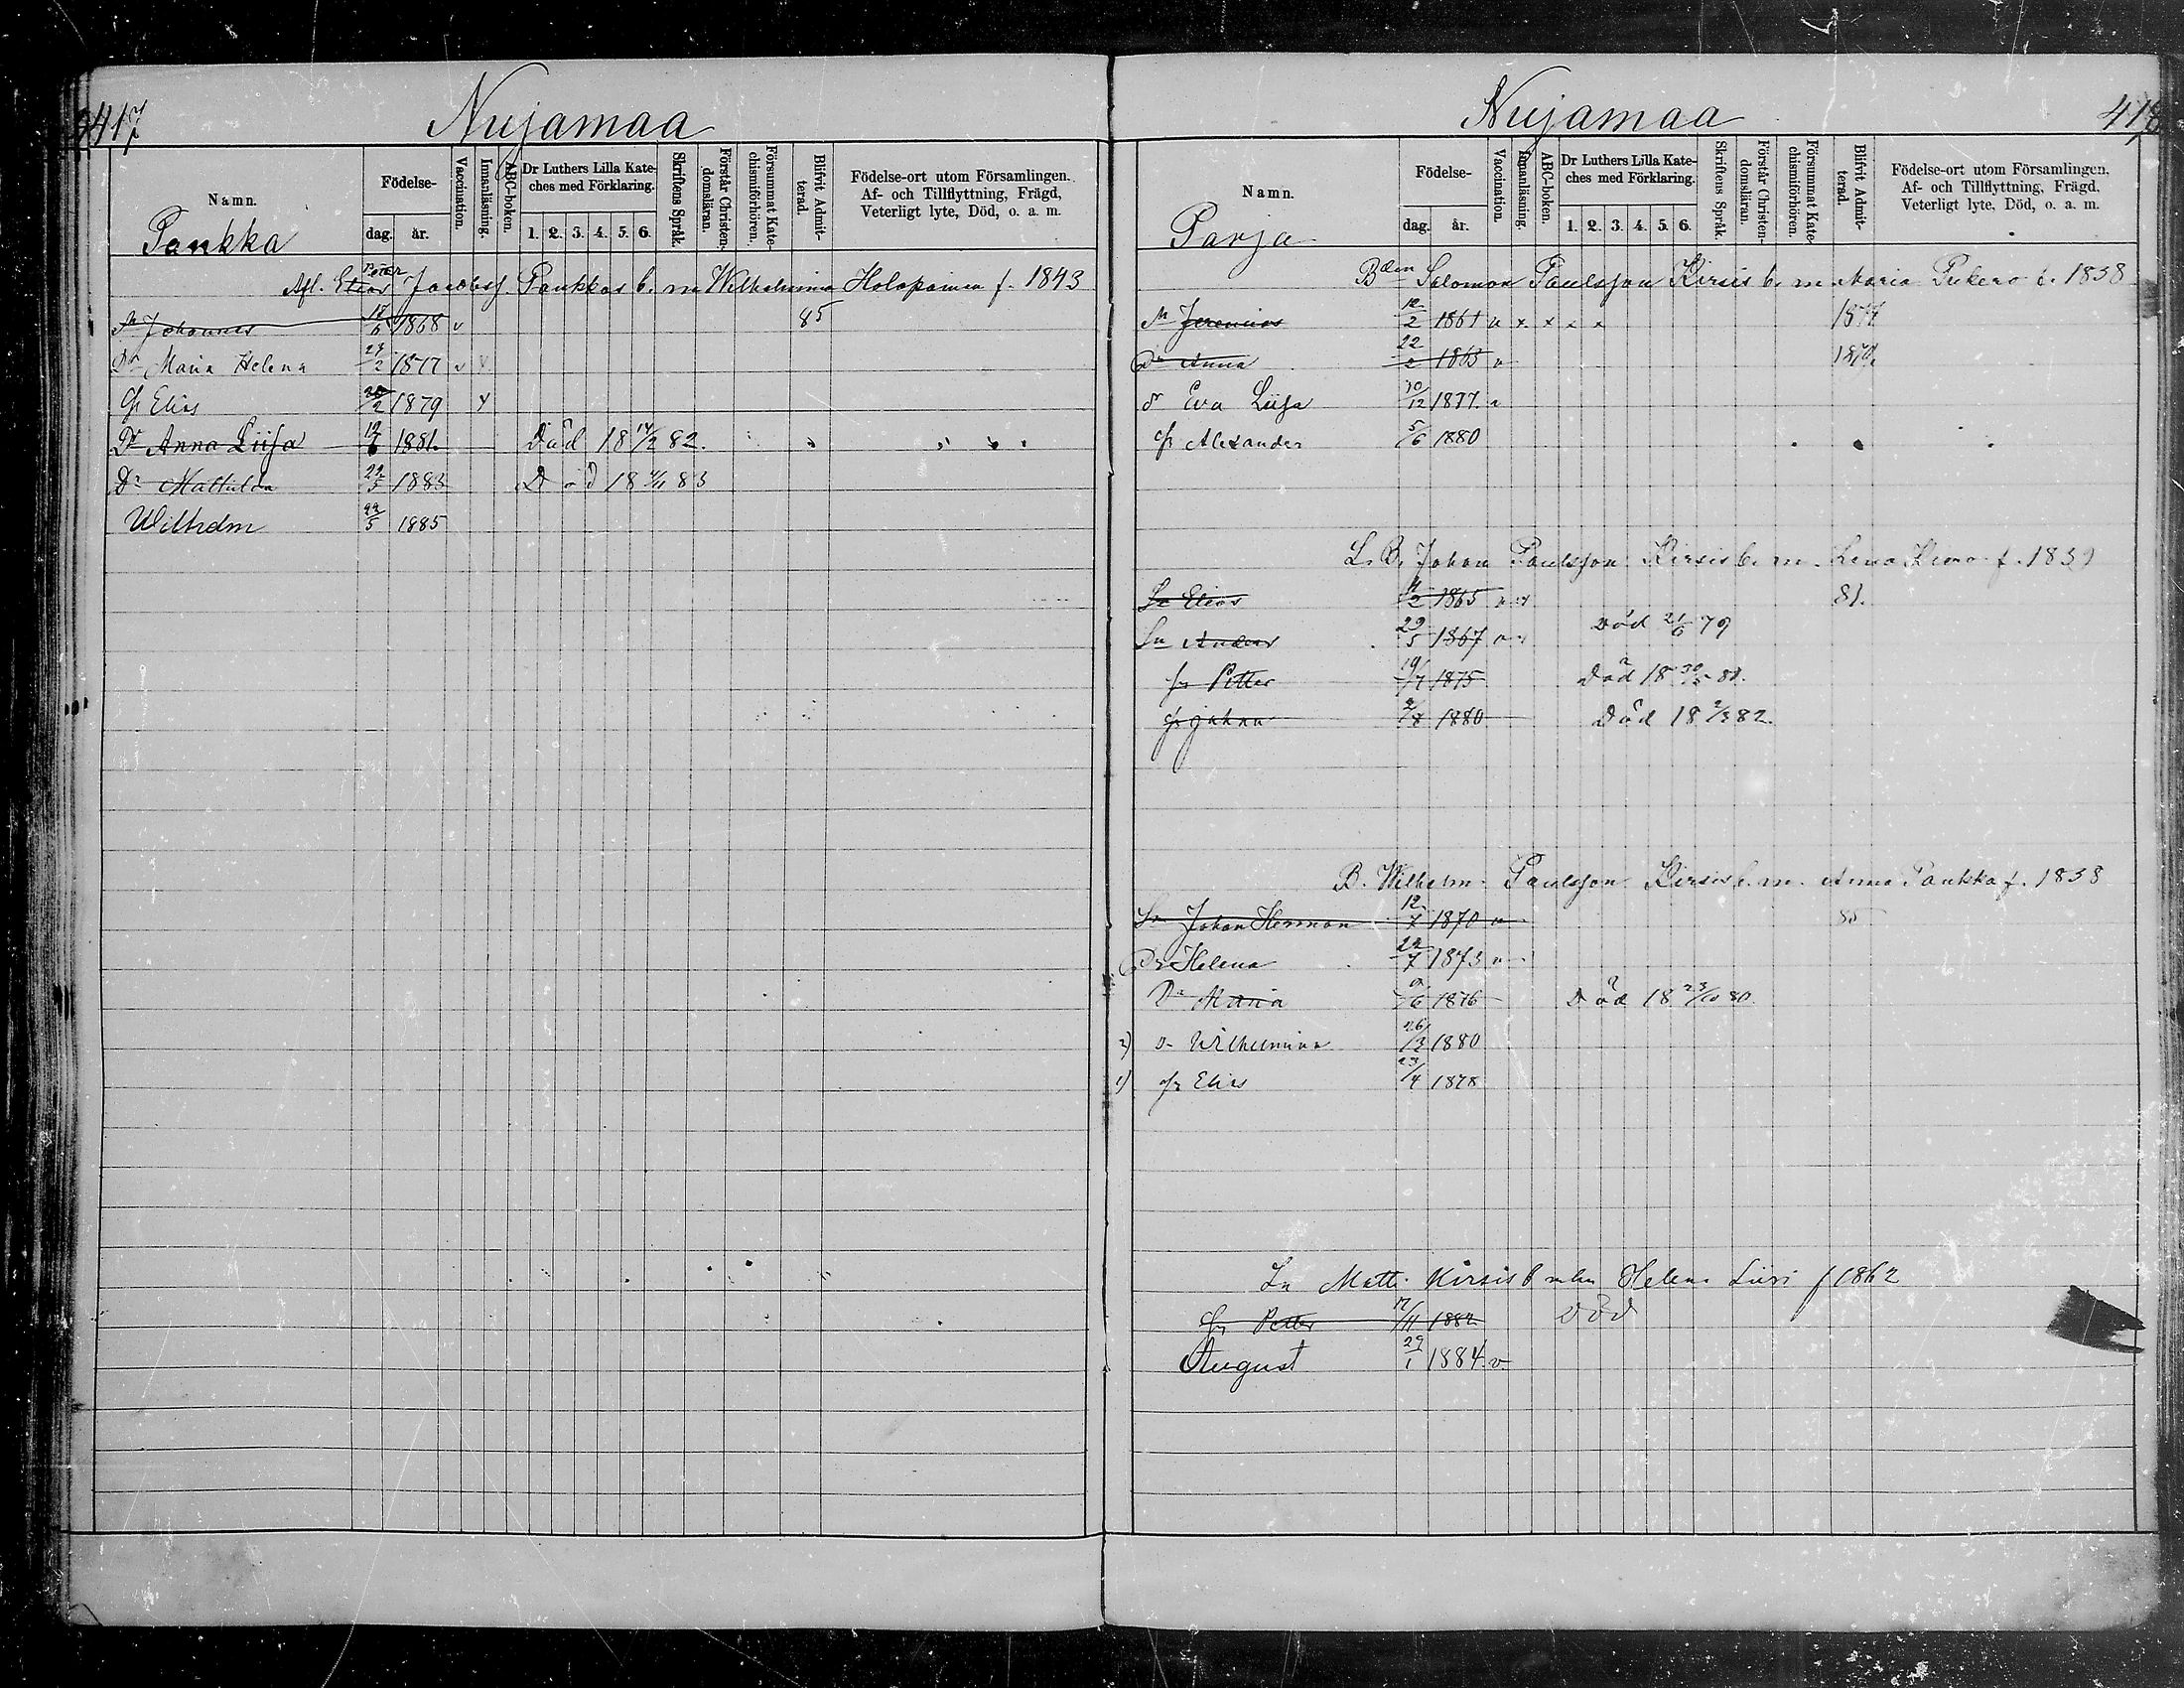 417
Nujamaa
Namn.
Födelse-
dag.
år.
Vaccination.
Innanläsning.
ABC-boken.
Dr Luthers Lilla Kate-
ches med Förklaring.
1. 2. 3. 4. 5. 6.
Skriftens Språk.
Förstår Christen-
domsläran.
Försummat Kate-
chismiförhören.
Blifvit Admit-
terad.
Födelse-ort utom Församlingen.
Af- och Tillflyttning, Frägd,
Veterligt lyte, Död, o. a. m.
Pankka
Afl. Elias Peter Jacobsf. Pankkas b. m Wilhelmina Holopainen f. 1843
Sn Johannes 1868 v 85
Dr Maria Helena 1877 v
Elias 20/2 1879
Dr Anna Liisa 1881 Död 18 14/2 82.
Dr Mathilda 1883 Död 18 83
Wilhelm 22/5 1885
418
Nujamaa
Namn.
Födelse-
dag.
år.
Vaccination.
Innanläsning.
ABC-boken.
Dr Luthers Lilla Kate-
ches med Förklaring.
1. 2. 3. 4. 5. 6.
Skriftens Språk.
Förstår Christen-
domsläran.
Försummat Kate-
chismiförhören.
Blifvit Admit-
terad.
Födelse-ort utom Församlingen.
Af- och Tillflyttning, Frägd,
Veterligt lyte, Död, o. a. m.
Parja
Bden Salomon Paulsson Kirsis b. m Maria Pukero f. 1838
Sn Jeremias 12/2 1861 v x x x x 1877
Dr Anna 22/2 1863 v
Dr Eva Liisa 30/12 1877
Alexander 5/6 1880
L. B. Johan Paulsson Kirsis b. m. Lena f. 1839
Sn Elias 1865 81.
Sn Anders 29/5 1867 Död 21/6 79
Petter 19/7 1875 Död 18
Johan 1880 Död 18 2/3 82.
B. Wilhelm Paulsson Kirsis b. m. Anna Pankka f. 1838
Sn Johan Herman 12/7 1870 v 85
Dr Helena 22/7 1873 v
Dr Maria 1876 Död 18 23/10 80.
2) Wilhelmina 26/3 1880
1) Elias 23/4 1878
Sn Matti Kirsis b m hu Helena Liiri f 1862
Petter 1882 Död
August 29/1 1884 v